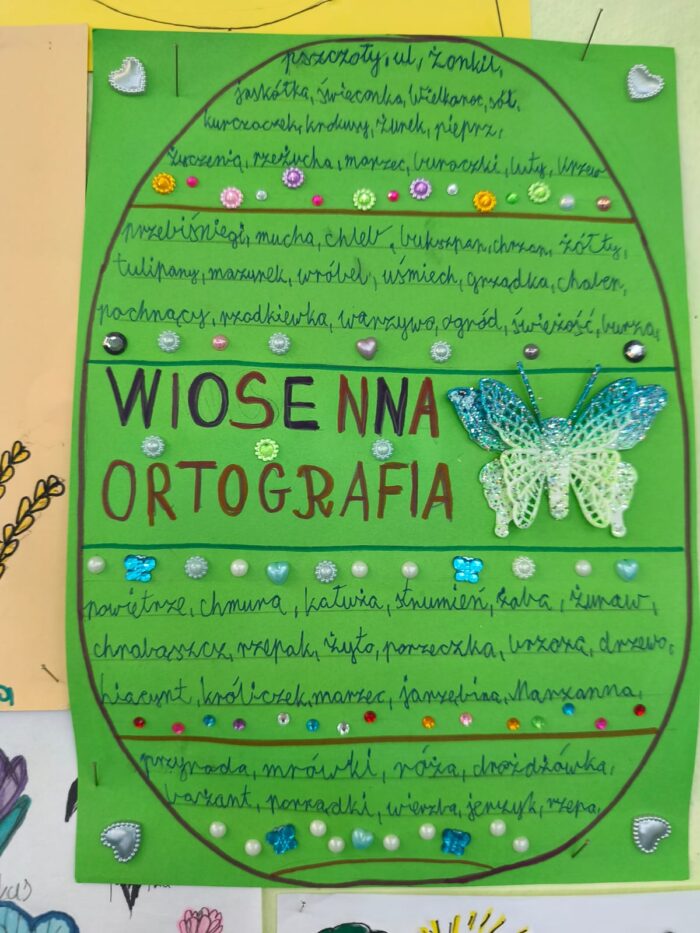 pszczoły, ul, żonkil,
jaskółka, święconka, Wielkanoc, sól,
kurczaczek, krokusy, żurek, pieprz,
życzenia, rzeżucha, marzec, buraczki, luty, krzew
przebiśniegi, mucha, chleb, bukszpan, chrzan, żółty,
tulipany, mazurek, wróbel, uśmiech, grządka, chaber,
pachnący, rzodkiewka, warzywo, ogród, świeżość, burza,
WIOSENNA
ORTOGRAFIA
powietrze, chmura, kałuża, strumień, żaba, żuraw,
chrabąszcz, rzepak, żyto, porzeczka, brzoza, drzewo,
hiacynt, króliczek, marzec, jarzębina, Marzanna,
przyroda, mrówki, róża, drożdżówka,
bażant, porządki, wierzba, jerzyk, rzepa,